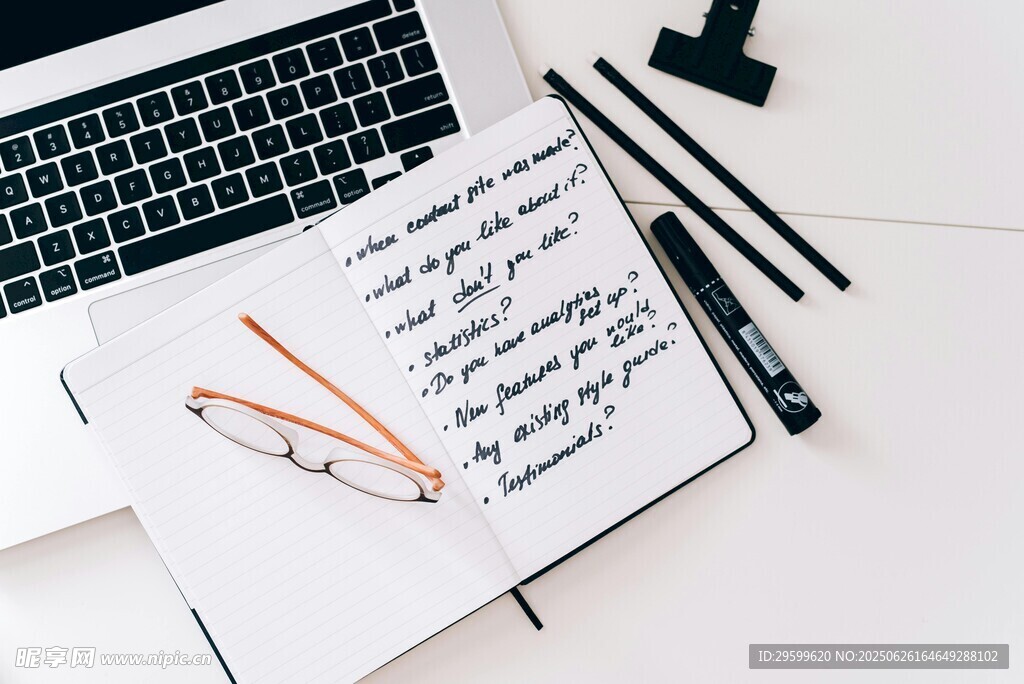 • when content site was made?
• what do you like about it?
• what don't you like?
• statistics?
• Do you have analytics
set up?
• New features you would
like?
• Any existing style guide?
• Testimonials?
delete
return
shift
command
option
control
option
command
昵享网 www.nipic.cn
ID:29599620 NO:20250626164649288102